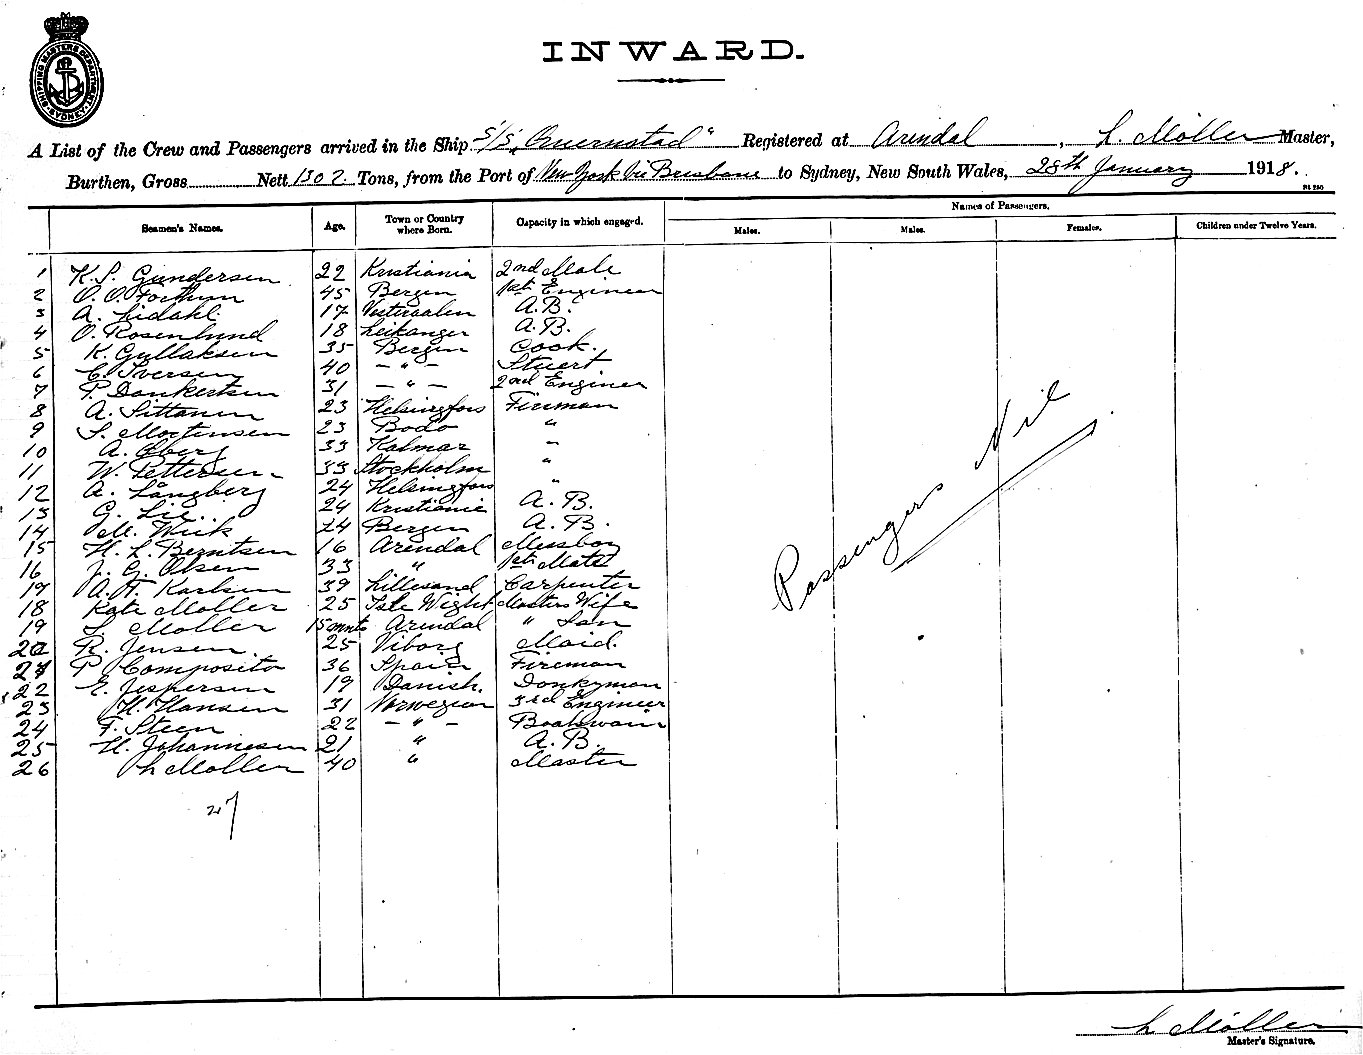 SHIPPING MASTERS DEPARTMENT SYDNEY
INWARD.
A List of the Crew and Passengers arrived in the Ship S/S „Quernstad“ Registered at Arendal, L. Möller Master,
Burthen, Gross Nett 1307 Tons, from the Port of New York via Brisbane to Sydney, New South Wales, 28th January 1918.
Seamen's Names. Age. Town or Country where Born. Capacity in which engaged. Names of Passengers.
Males. Males. Females. Children under Twelve Years.
1 K. S. Gundersen 22 Kristiania 2nd Mate
2 O. O. 45 Bergen 1st Engineer
3 A. Lidahl 17 Vesteraalen A.B.
4 O. Rosenlund 18 Leikanger A.B.
5 K. Gullaksen 35 Bergen Cook.
6 C. Iversen 40 — " — Stuert
7 P. Dankertsen 31 — " — 2nd Enginer
8 A. Sittanen 23 Helsingfors Fireman
9 S. Mortensen 23 Bodo "
10 A. Öberg 33 Kalmar "
11 W. Pettersen 33 Stockholm "
12 A. Långberg 24 Helsingfors "
13 G. Lie 24 Kristiania A.B.
14 M. Wiik 24 Bergen A.B.
15 H. L. Berntsen 16 Arendal Messboy
16 J. G. Olsen 33 " 1st Mate
17 A. H. Karlsen 39 Lillesand Carpenter
18 Kate Möller 25 Isle Wight Masters Wife
19 L. Möller 15 mnts Arendal " Son
20 R. Jensen 25 Viborg Maid.
21 P. Composito 36 Spain Fireman
22 E. Jespersen 19 Danish. Donkyman
23 H. Hansen 31 Norwegian 3rd Engineer
24 F. Steen 22 — " — Boatswain
25 H. Johannesen 21 " A.B.
26 L Möller 40 " Master
Passengers Nil
27
L Möller
Master's Signature.